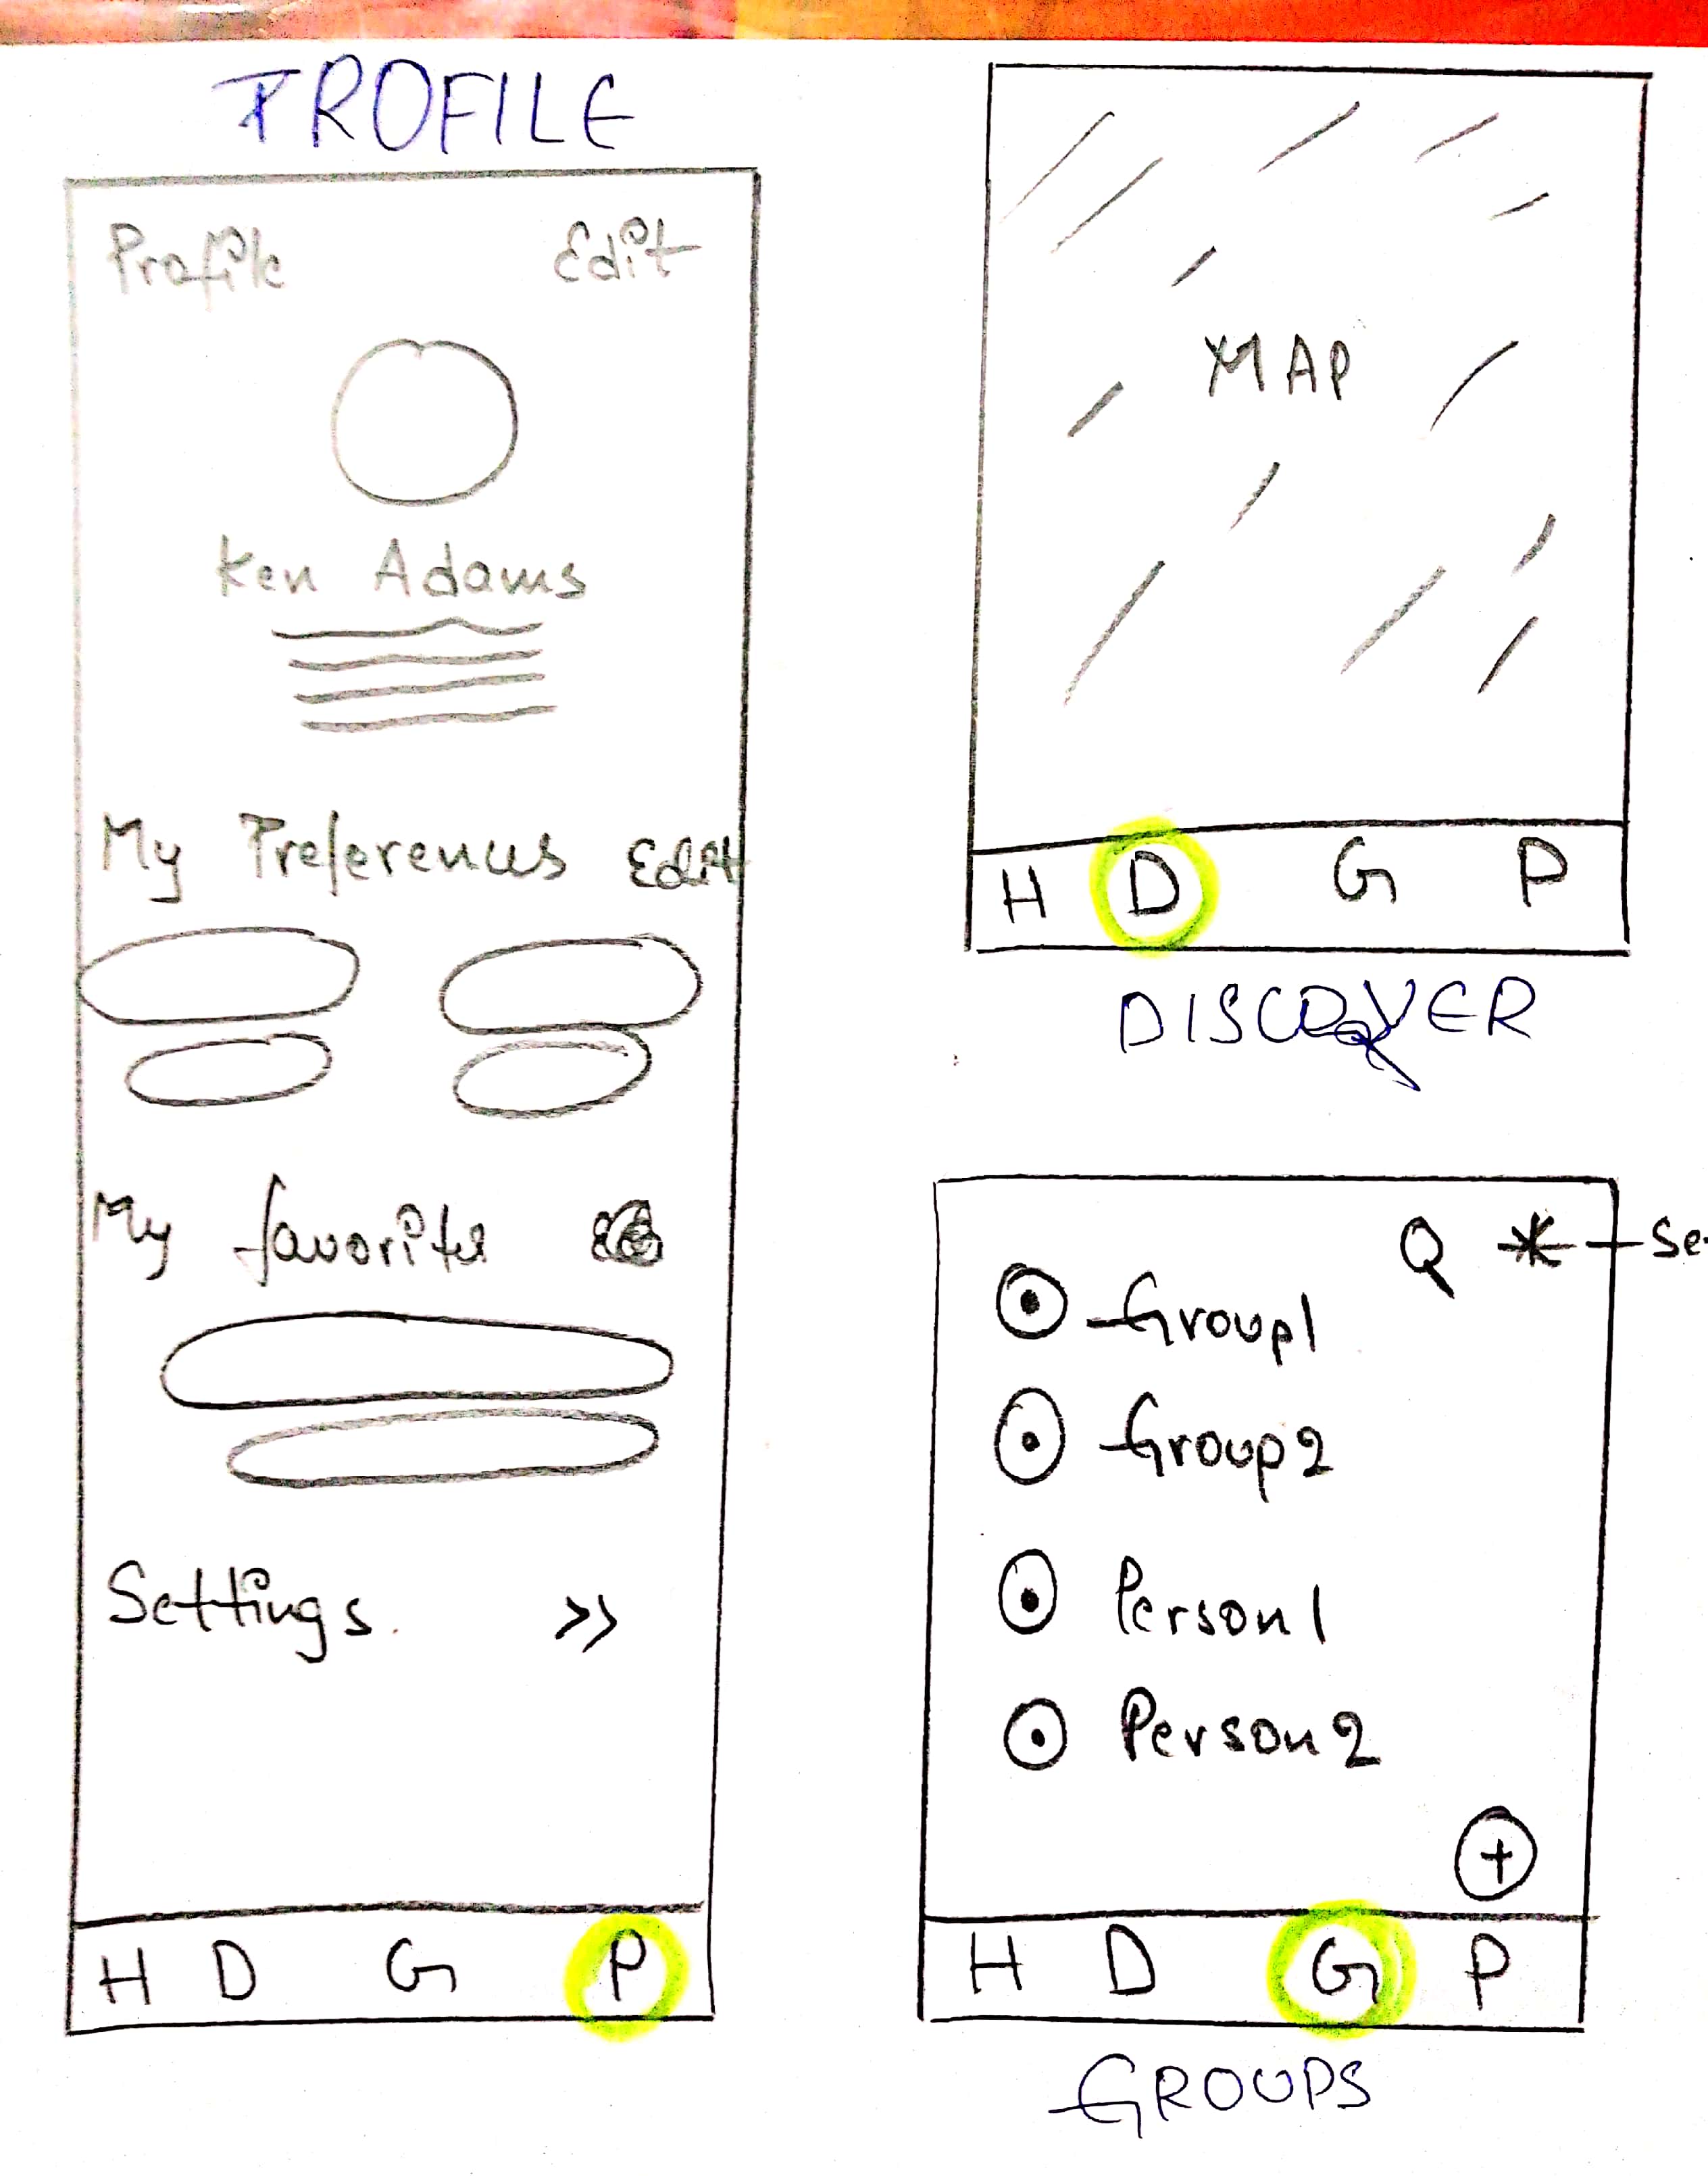 PROFILE
Profile Edit
Ken Adams
My Preferences Edit
My favorites
Settings >>
H D G P
MAP
H D G P
DISCOVER
Group1
Group2
Person1
Person2
+
H D G P
GROUPS